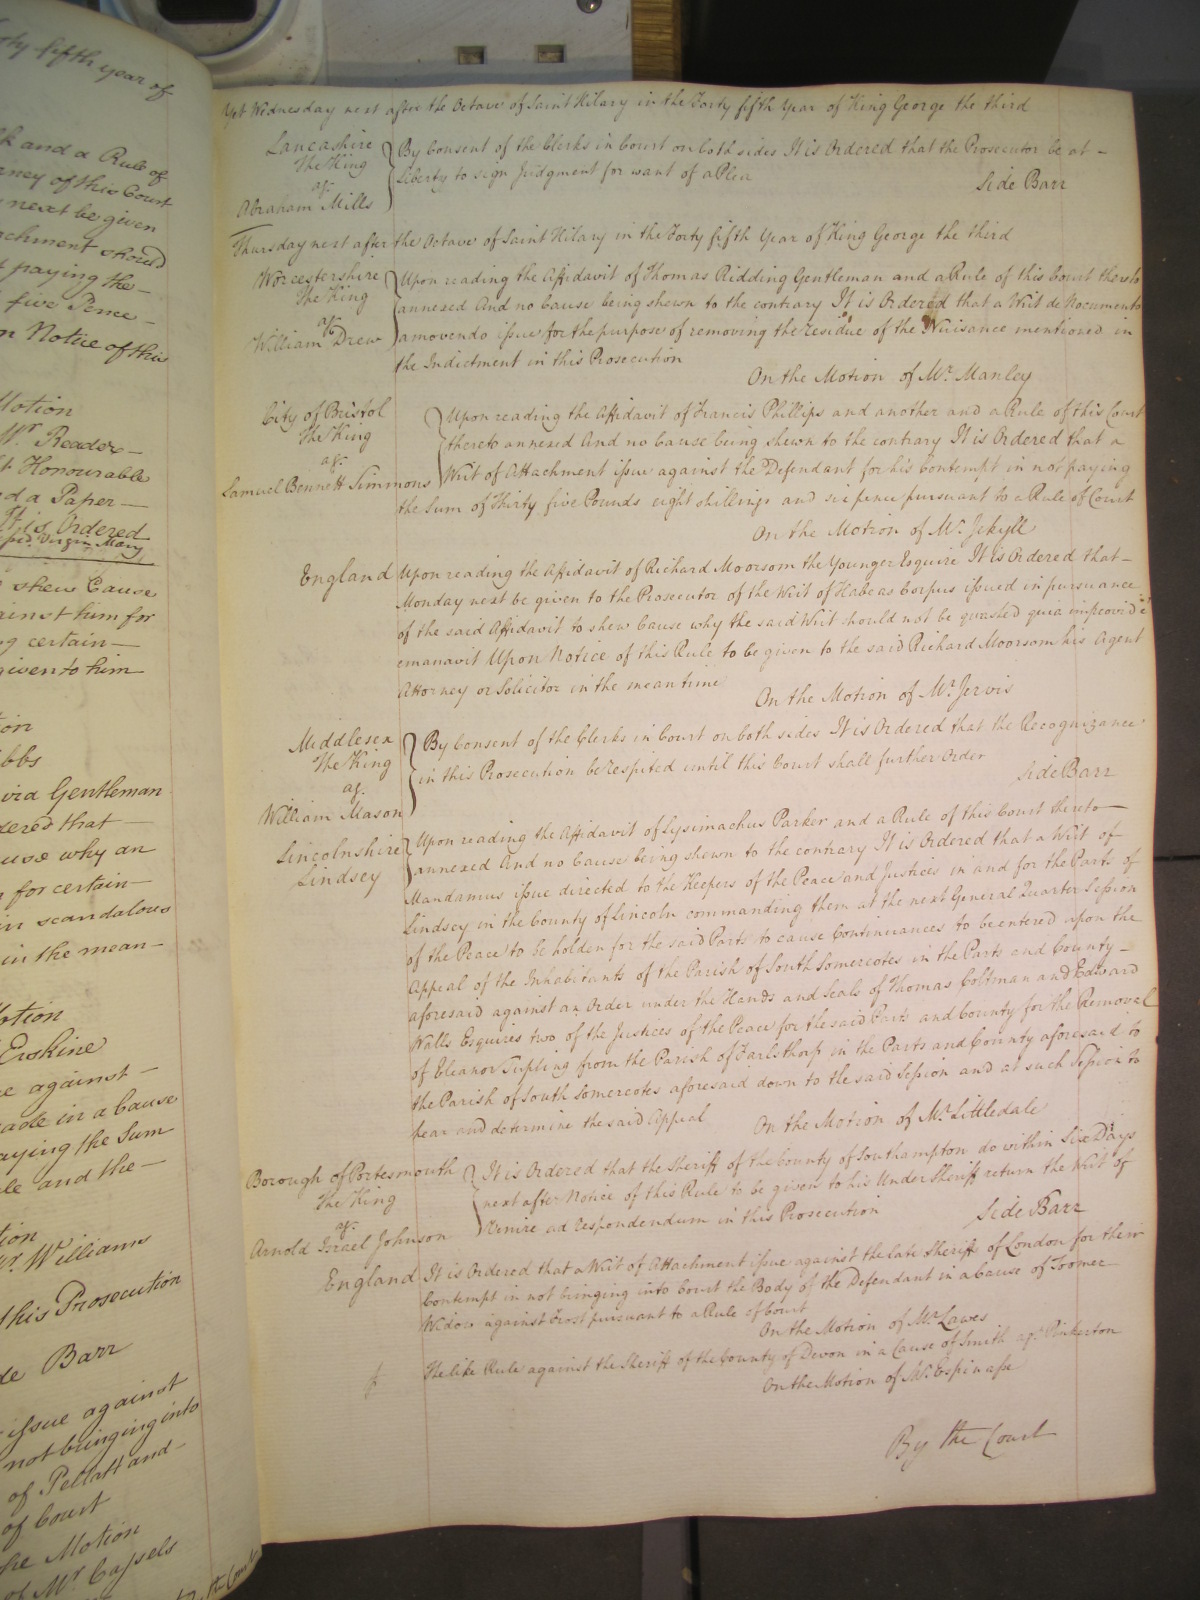 rty fifth year of
k and a Rule of
rney of this Court
next be given
achment should
t paying the—
five Pence—
n Notice of this
Motion
Mr. Reader—
t Honourable
d a Paper—
It is Ordered
shew Cause
ainst him for
g certain—
given to him
ion
ibbs
Gentleman
dered that—
ause why an
n for certain—
in scandalous
in the mean—
Motion
Erskine
ce against—
ade in a Cause
aying the Sum
le and the—
tion
Mr. Williams
this Prosecution
de Barr
issue against
not bringing into
of Pellatt and—
of Court
he Motion
of Mr. Cassels
the Court
Yet Wednesday next after the Octave of Saint Hilary in the Forty fifth Year of King George the third
Lancashire
The King
agt.
Abraham Mills
By Consent of the Clerks in Court on both sides It is Ordered that the Prosecutor be at—
Liberty to sign Judgment for want of a Plea
Side Barr
Thursday next after the Octave of Saint Hilary in the Forty fifth Year of King George the third
Worcestershire
The King
agt.
William Drew
Upon reading the Affidavit of Thomas Ridding Gentleman and a Rule of this Court thereto
annexed And no Cause being shewn to the contrary It is Ordered that a Writ de Nocumento
amovendo issue for the purpose of removing the residue of the Nuisance mentioned in
the Indictment in this Prosecution
On the Motion of Mr. Manley
City of Bristol
The King
agt.
Samuel Bennett Simmons
Upon reading the Affidavit of Francis Phillips and another and a Rule of this Court
thereto annexed And no Cause being shewn to the contrary It is Ordered that a
Writ of Attachment issue against the Defendant for his Contempt in not paying
the Sum of Thirty five Pounds eight shillings and six pence pursuant to a Rule of Court
On the Motion of Mr. Jekyll
England
Upon reading the Affidavit of Richard Moorsom the Younger Esquire It is Ordered that—
Monday next be given to the Prosecutor of the Writ of Habeas Corpus issued in pursuance
of the said Affidavit to shew Cause why the said Writ should not be quashed quia improvidè
emanavit Upon Notice of this Rule to be given to the said Richard Moorsom his Agent
Attorney or Solicitor in the mean time
On the Motion of Mr. Jervis
Middlesex
The King
ag.
William Mason
By Consent of the Clerks in Court on both sides It is Ordered that the Recognizance
in this Prosecution be respited until this Court shall further Order
Side Barr
Lincolnshire
Lindsey
Upon reading the Affidavit of Lysimachus Parker and a Rule of this Court thereto—
annexed And no Cause being shewn to the contrary It is Ordered that a Writ of
Mandamus issue directed to the Keepers of the Peace and Justices in and for the Parts of
Lindsey in the County of Lincoln commanding them at the next General Quarter Session
of the Peace to be holden for the said Parts to cause Continuances to be entered upon the
Appeal of the Inhabitants of the Parish of South Somercotes in the Parts and County—
aforesaid against an Order under the Hands and Seals of Thomas Coltman and Edward
Walls Esquires two of the Justices of the Peace for the said Parts and County for the Removal
of Eleanor Tupling from the Parish of Farlsthorp in the Parts and County aforesaid to
the Parish of South Somercotes aforesaid down to the said Session and at such Session to
hear and determine the said Appeal
On the Motion of Mr. Littledale
Borough of Portesmouth
The King
agt.
Arnold Israel Johnson
It is Ordered that the Sheriff of the County of Southampton do within Six Days
next after Notice of this Rule to be given to his Under Sheriff return the Writ of
Venire ad respondendum in this Prosecution
Side Barr
England
It is Ordered that a Writ of Attachment issue against the late Sheriff of London for their
Contempt in not bringing into Court the Body of the Defendant in a Cause of Toomer
Widow against Frost pursuant to a Rule of Court
On the Motion of Mr. Lawes
The like Rule against the Sheriff of the County of Devon in a Cause of Smith agt. Pinkerton
On the Motion of Mr. Espinasse
By the Court